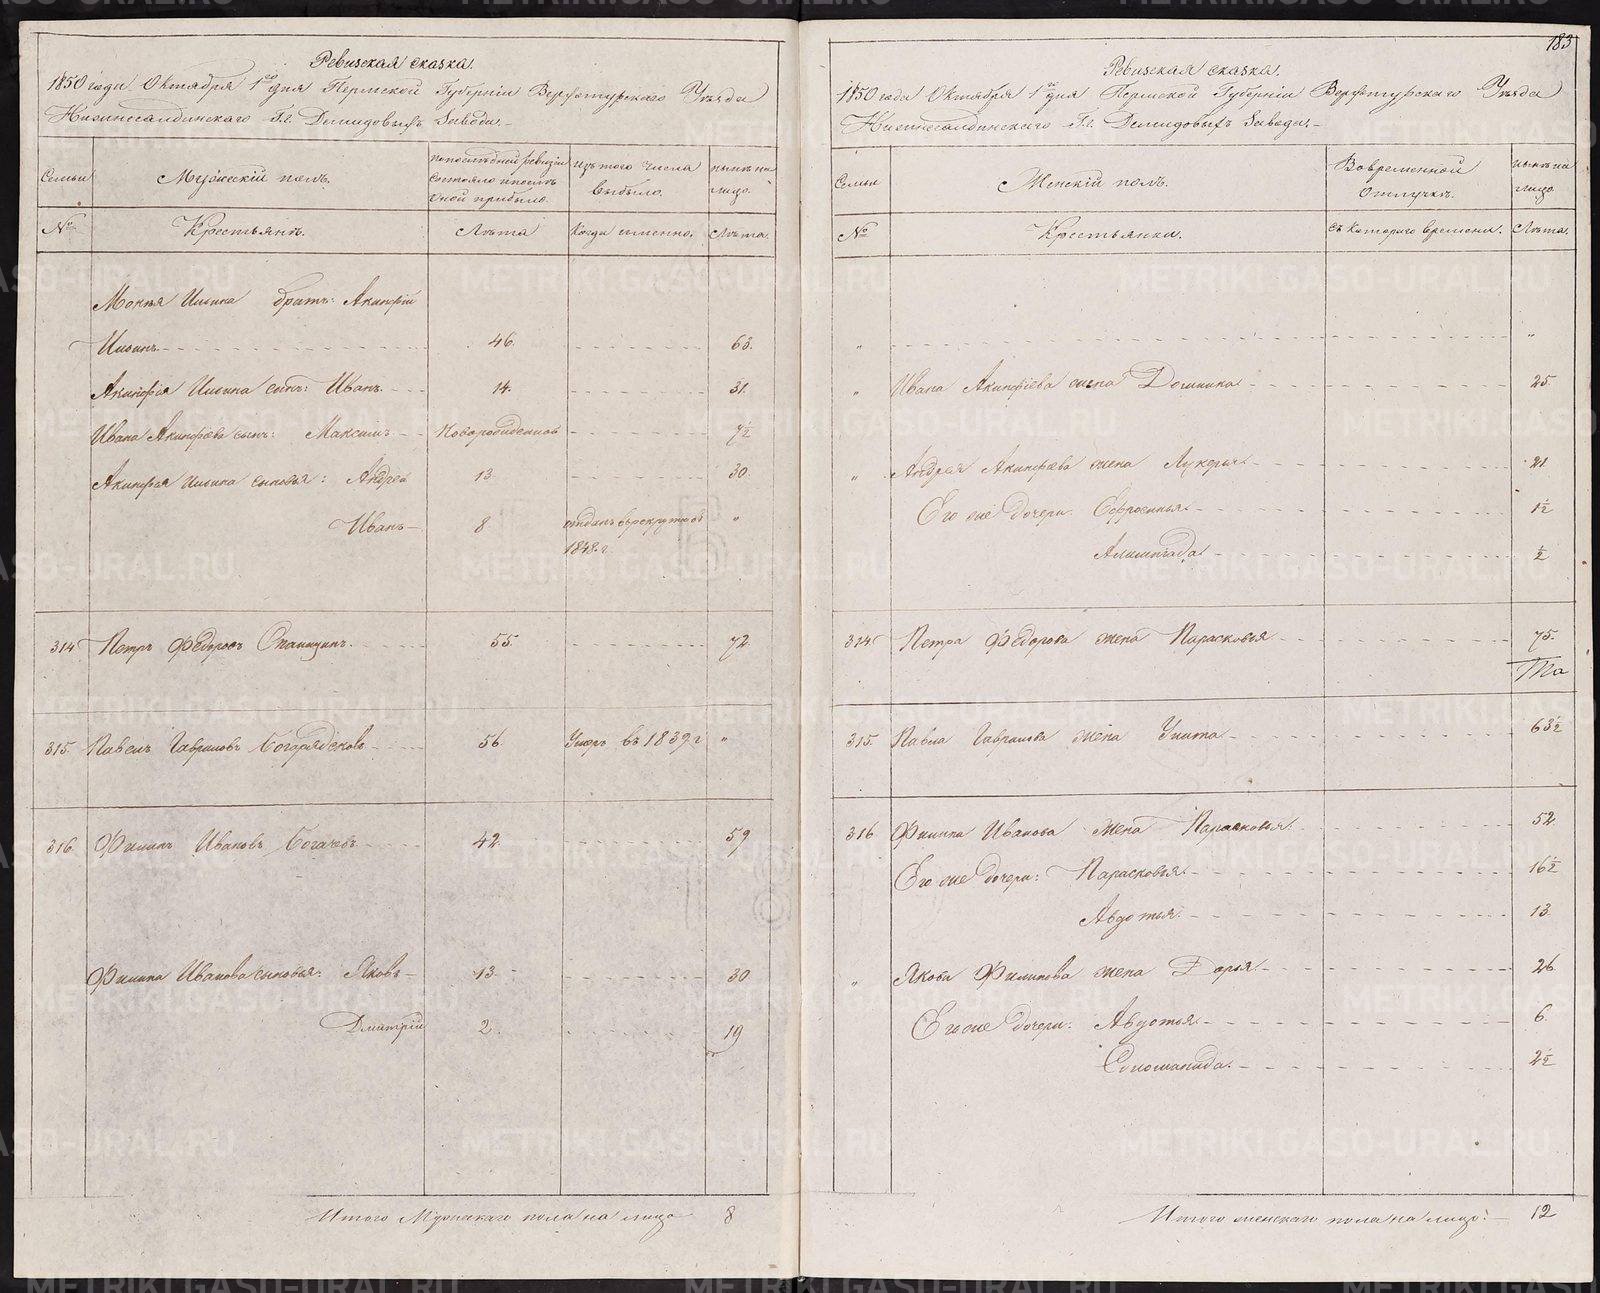 Ревизская сказка.
1850 года Октября 1го дня Пермской Губерніи Верхотурскаго Уѣзда
Нижнесалдинскаго Г.г. Демидовыхъ Завода.
Семьи
Мужескій полъ.
По последней ревизіи состояло и после оной прибыло.
Изъ того числа выбыло.
нынѣ на лицо.
№
Крестьянъ.
Лѣта
Когда именно.
Лѣта.
Мокѣя Ильина братъ: Акинфій
Ильинъ 46. 63.
Акинфія Ильина сынъ: Иванъ 14. 31.
Ивана Акинфіева сынъ: Максимъ Новорожденной 7½
Акинфія Ильина сыновья: Андрей 13. 30.
Иванъ 8 отданъ въ рекруты въ "
1848 г
314 Петръ Федоровъ 55. 72.
315. Павелъ Гавриловъ 56. Умеръ въ 1839 г "
316. Филипъ Ивановъ Богачевъ 42. 59
Филипа Иванова сыновья: Яковъ 13. 30
Дмитрій 2. 19
Итого Мужескаго пола на лицо 8
183
Ревизская сказка.
1850 года Октября 1го дня Пермской Губерніи Верхотурскаго Уѣзда
Нижнесалдинскаго Г.г. Демидовыхъ Завода.
Семьи
Женскій полъ.
Во временной отлучкѣ.
нынѣ на лицо
№
Крестьянки.
съ котораго времени.
Лѣта.
" "
" Ивана Акинфіева жена Домника 25.
" Андрея Акинфіева жена Лукерья 21
Его же дочери: Ефросинья 1½
½
314 Петра Федорова жена Парасковья 75.
Та
315. Павла Гаврилова жена Улита 63½
316 Филипа Иванова жена Парасковья. 52
Его же дочери: Парасковья 16½
Авдотья 13.
" Якова Филипова жена Дарья 26
Его же дочери: Авдотья 6.
Соломанида. 2½
Итого женскаго пола на лицо: 12
METRIKI.GASO-URAL.RU